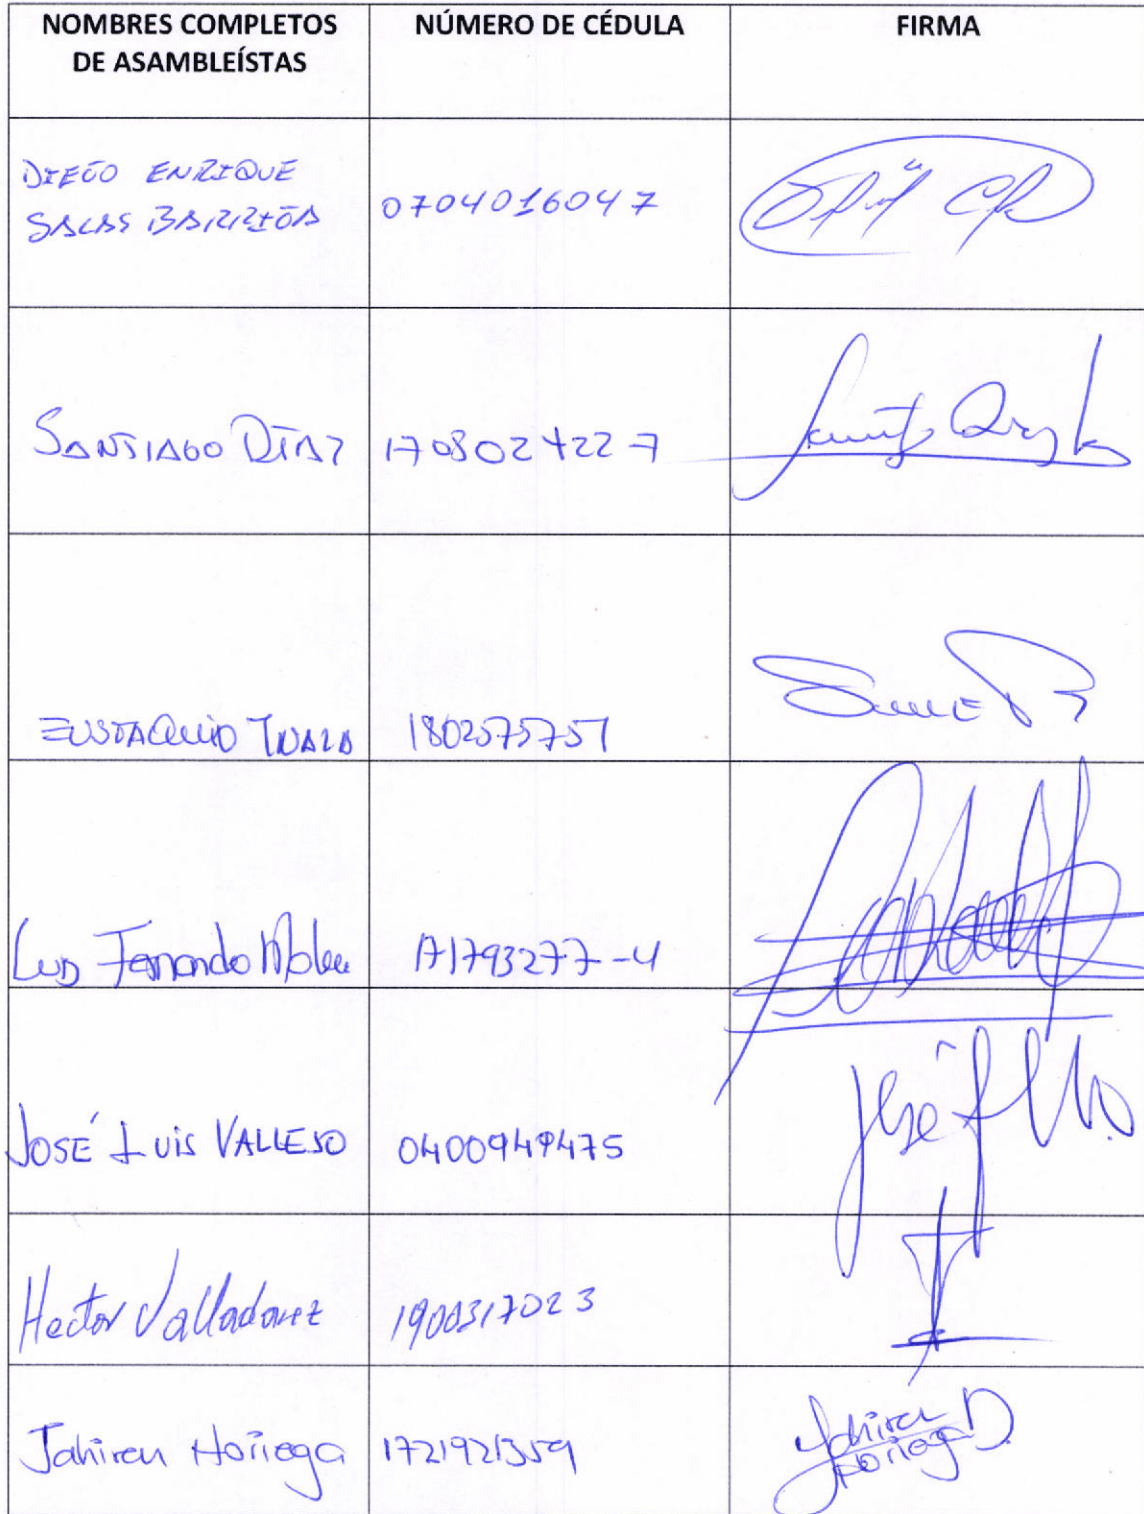 NOMBRES COMPLETOS
DE ASAMBLEÍSTAS
NÚMERO DE CÉDULA
FIRMA
DIEGO ENRIQUE
SALAS BARRIGA
0704016047
SANTIAGO DÍAZ
EUSTAQUIO TUALA
1802575757
Luis Fernando
171793277-4
JOSÉ LUIS VALLEJO
0400949475
Hector Valladarez
1900317023
Jahiren Noriega
1721921359
Jahiren
Noriega D.